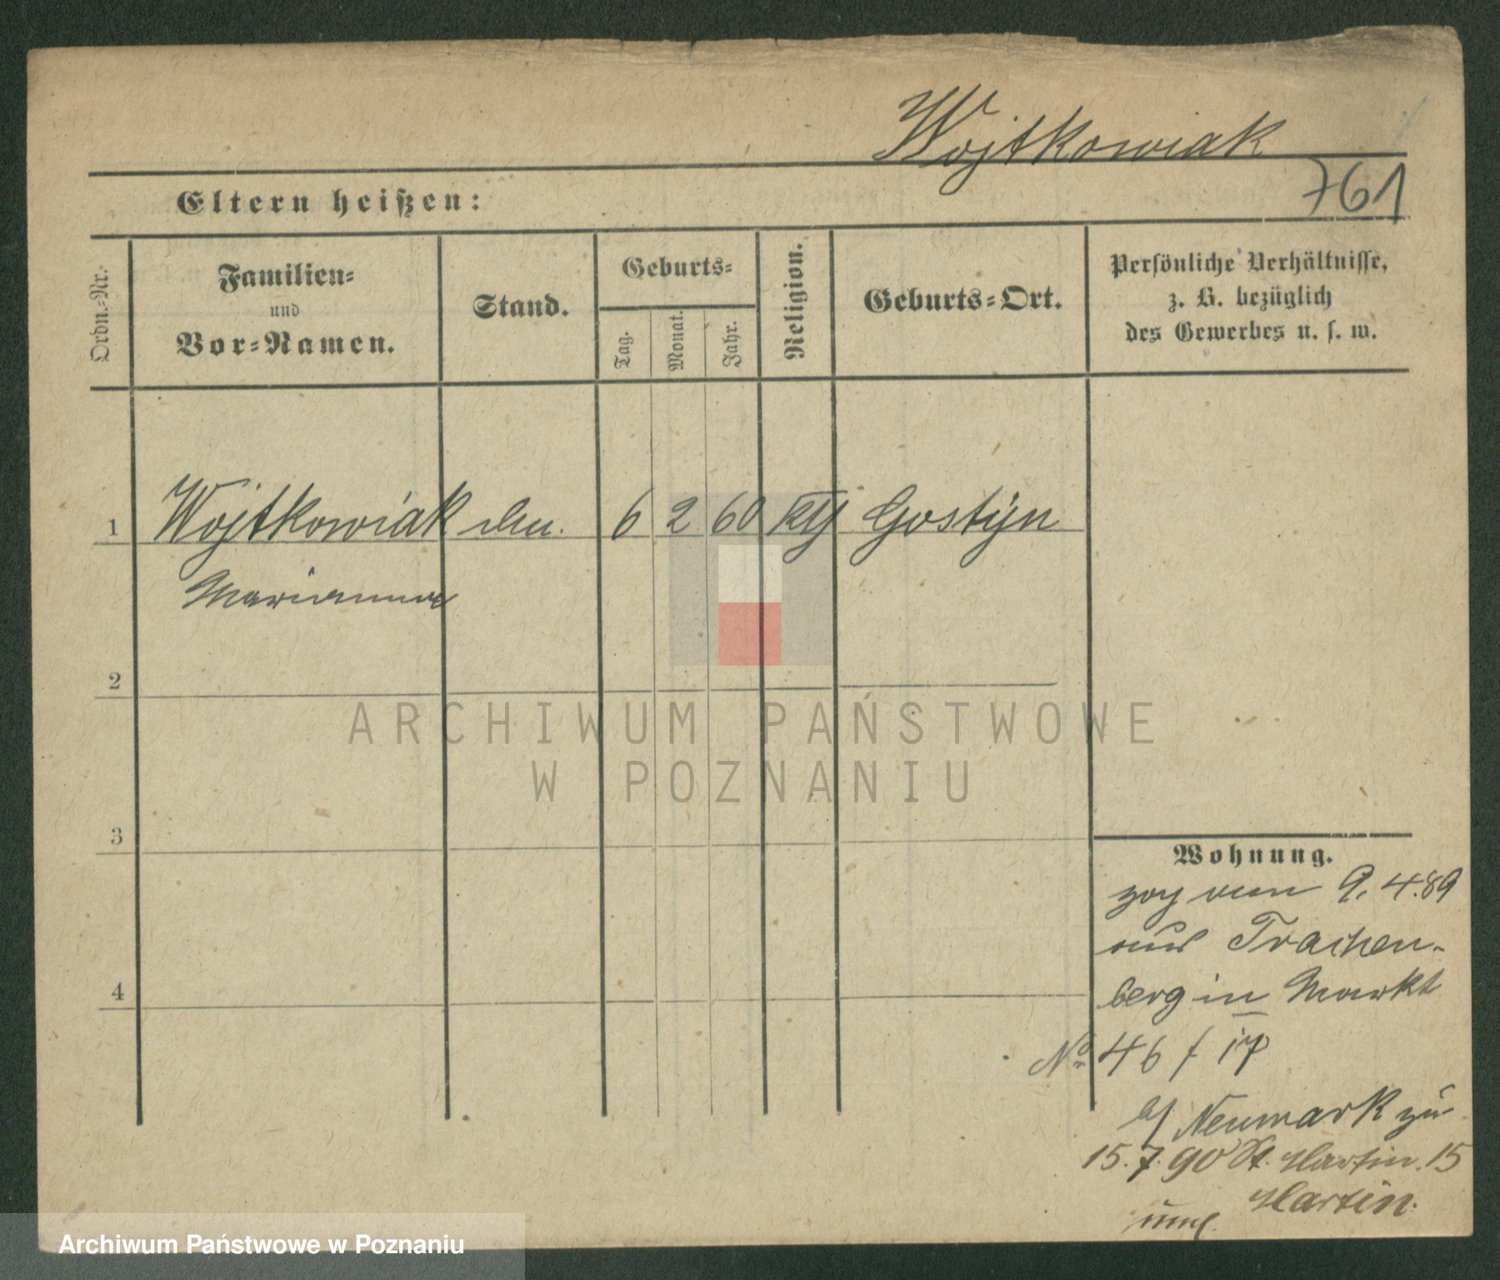 Wojtkowiak
761
Eltern heißen:
Ordn.-Nr.
Familien-
und
Vor-Namen.
Stand.
Geburts-
Tag.
Monat.
Jahr.
Religion.
Geburts-Ort.
Persönliche Verhältnisse,
z. B. bezüglich
des Gewerbes u. s. w.
1 Wojtkowiak 6 2 60 Gostijn
Marianna
2
ARCHIWUM PAŃSTWOWE
W POZNANIU
3
Wohnung.
zog vom 9. 4. 89
aus Trachen-
berg in Markt
4
No 46 / 17
b/ Neumark zu
15. 7. 90 St. Martin. 15
Martin.
Archiwum Państwowe w Poznaniu